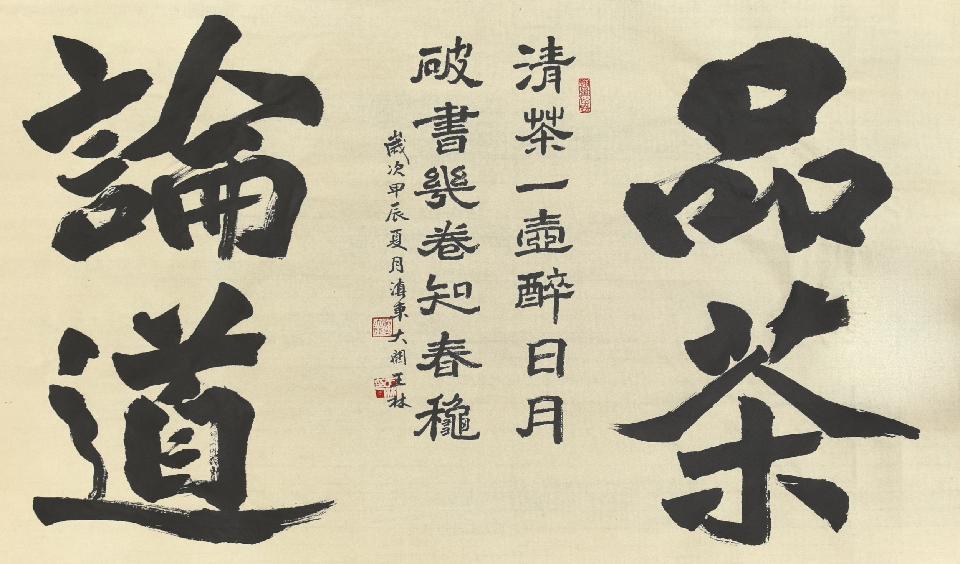 品茶
清茶一壺醉日月
破書幾卷知春龝
歲次甲辰夏月滇東大關王林
論道